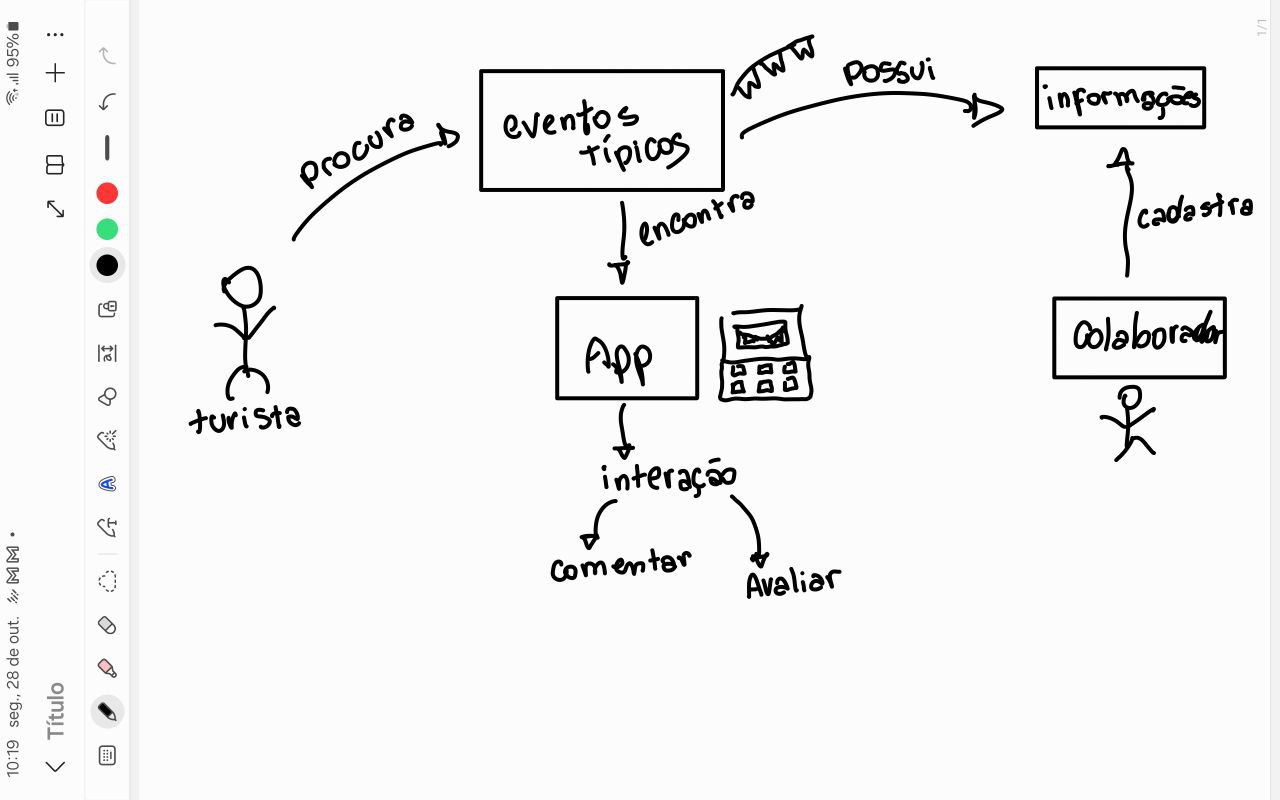 10:19 seg., 28 de out.
95%
Título
1/1
procura
eventos
típicos
Possui
informações
encontra
cadastra
App
Colaborador
turista
interação
comentar
Avaliar